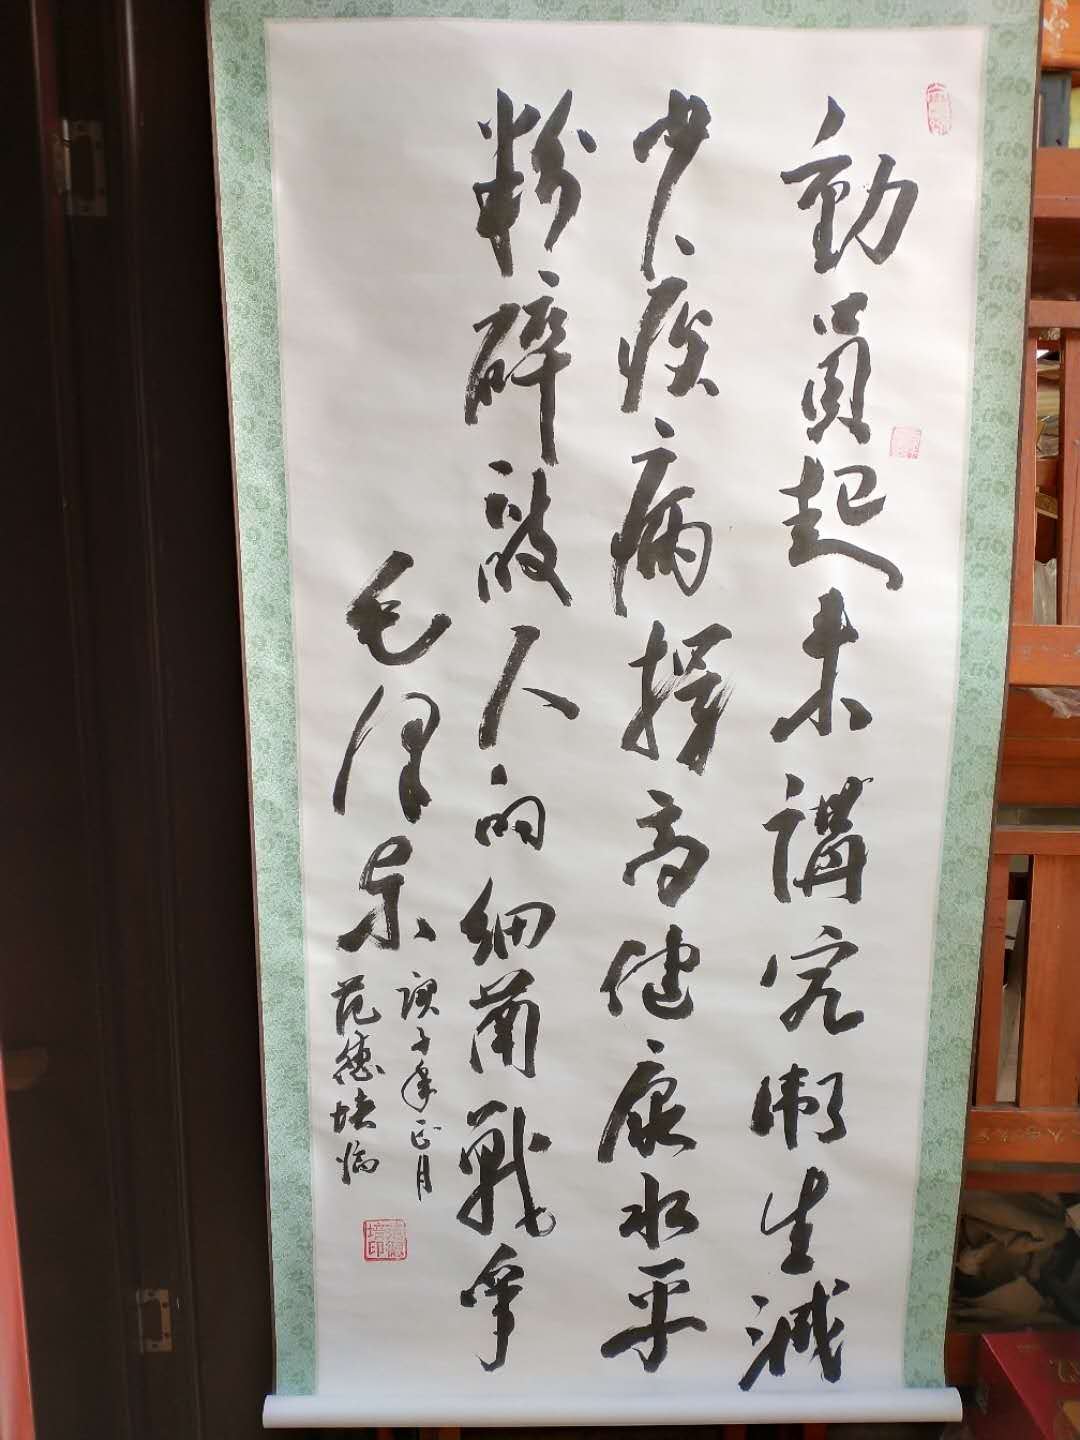 動員起来講究衛生減
少疾病提高健康水平
粉碎敵人的細菌戰爭
毛澤東
庚子年正月
范德臨